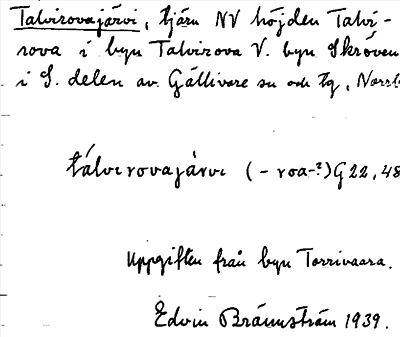 Talvirovajärvi, tjärn NV höjden Talvi-
rova i byn Talvirova V. byn Skröven
i S. delen av Gällivare sn och tg, Norrb
tálvirovajárvi (-roa-?) G 22,48
Uppgiften från byn Torrivaara.
Edvin Brännström 1939.